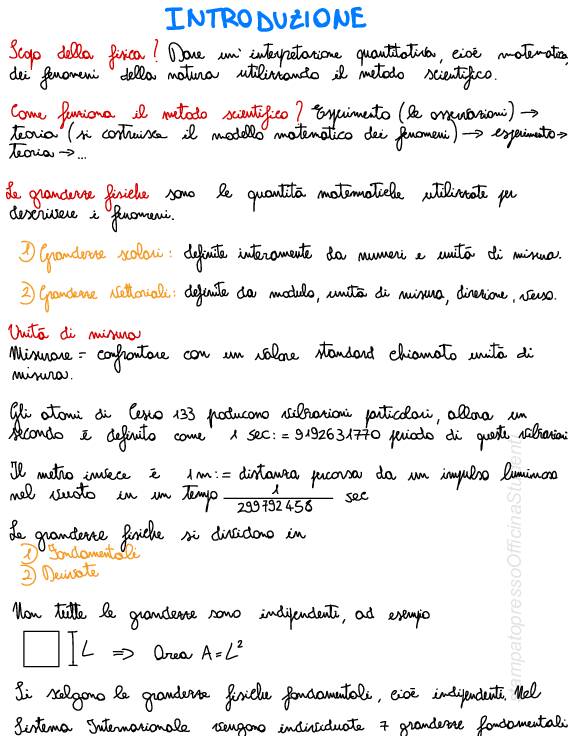 INTRODUZIONE
Scopo della fisica? Dare un' interpretazione quantitativa, cioè matematica,
dei fenomeni della natura utilizzando il metodo scientifico.
Come funziona il metodo scientifico? Esperimento (le osservazioni) →
teoria (si costruisce il modello matematico dei fenomeni) → esperimento →
teoria → ...
Le grandezze fisiche sono le quantità matematiche utilizzate per
descrivere i fenomeni.
1) Grandezze scalari: definite interamente da numeri e unità di misura.
2) Grandezze vettoriali: definite da modulo, unità di misura, direzione, verso.
Unità di misura
Misurare = confrontare con un valore standard chiamato unità di
misura.
Gli atomi di Cesio 133 producono vibrazioni particolari, allora un
secondo è definito come 1 sec := 9192631770 periodo di queste vibrazioni
Il metro invece è 1m := distanza percorsa da un impulso luminoso
nel vuoto in un tempo 1/299792458 sec
Le grandezze fisiche si dividono in
1) Fondamentali
2) Derivate
Non tutte le grandezze sono indipendenti, ad esempio
L ⇒ Area A = L²
Si scelgono le grandezze fisiche fondamentali, cioè indipendenti. Nel
Sistema Internazionale vengono individuate 7 grandezze fondamentali